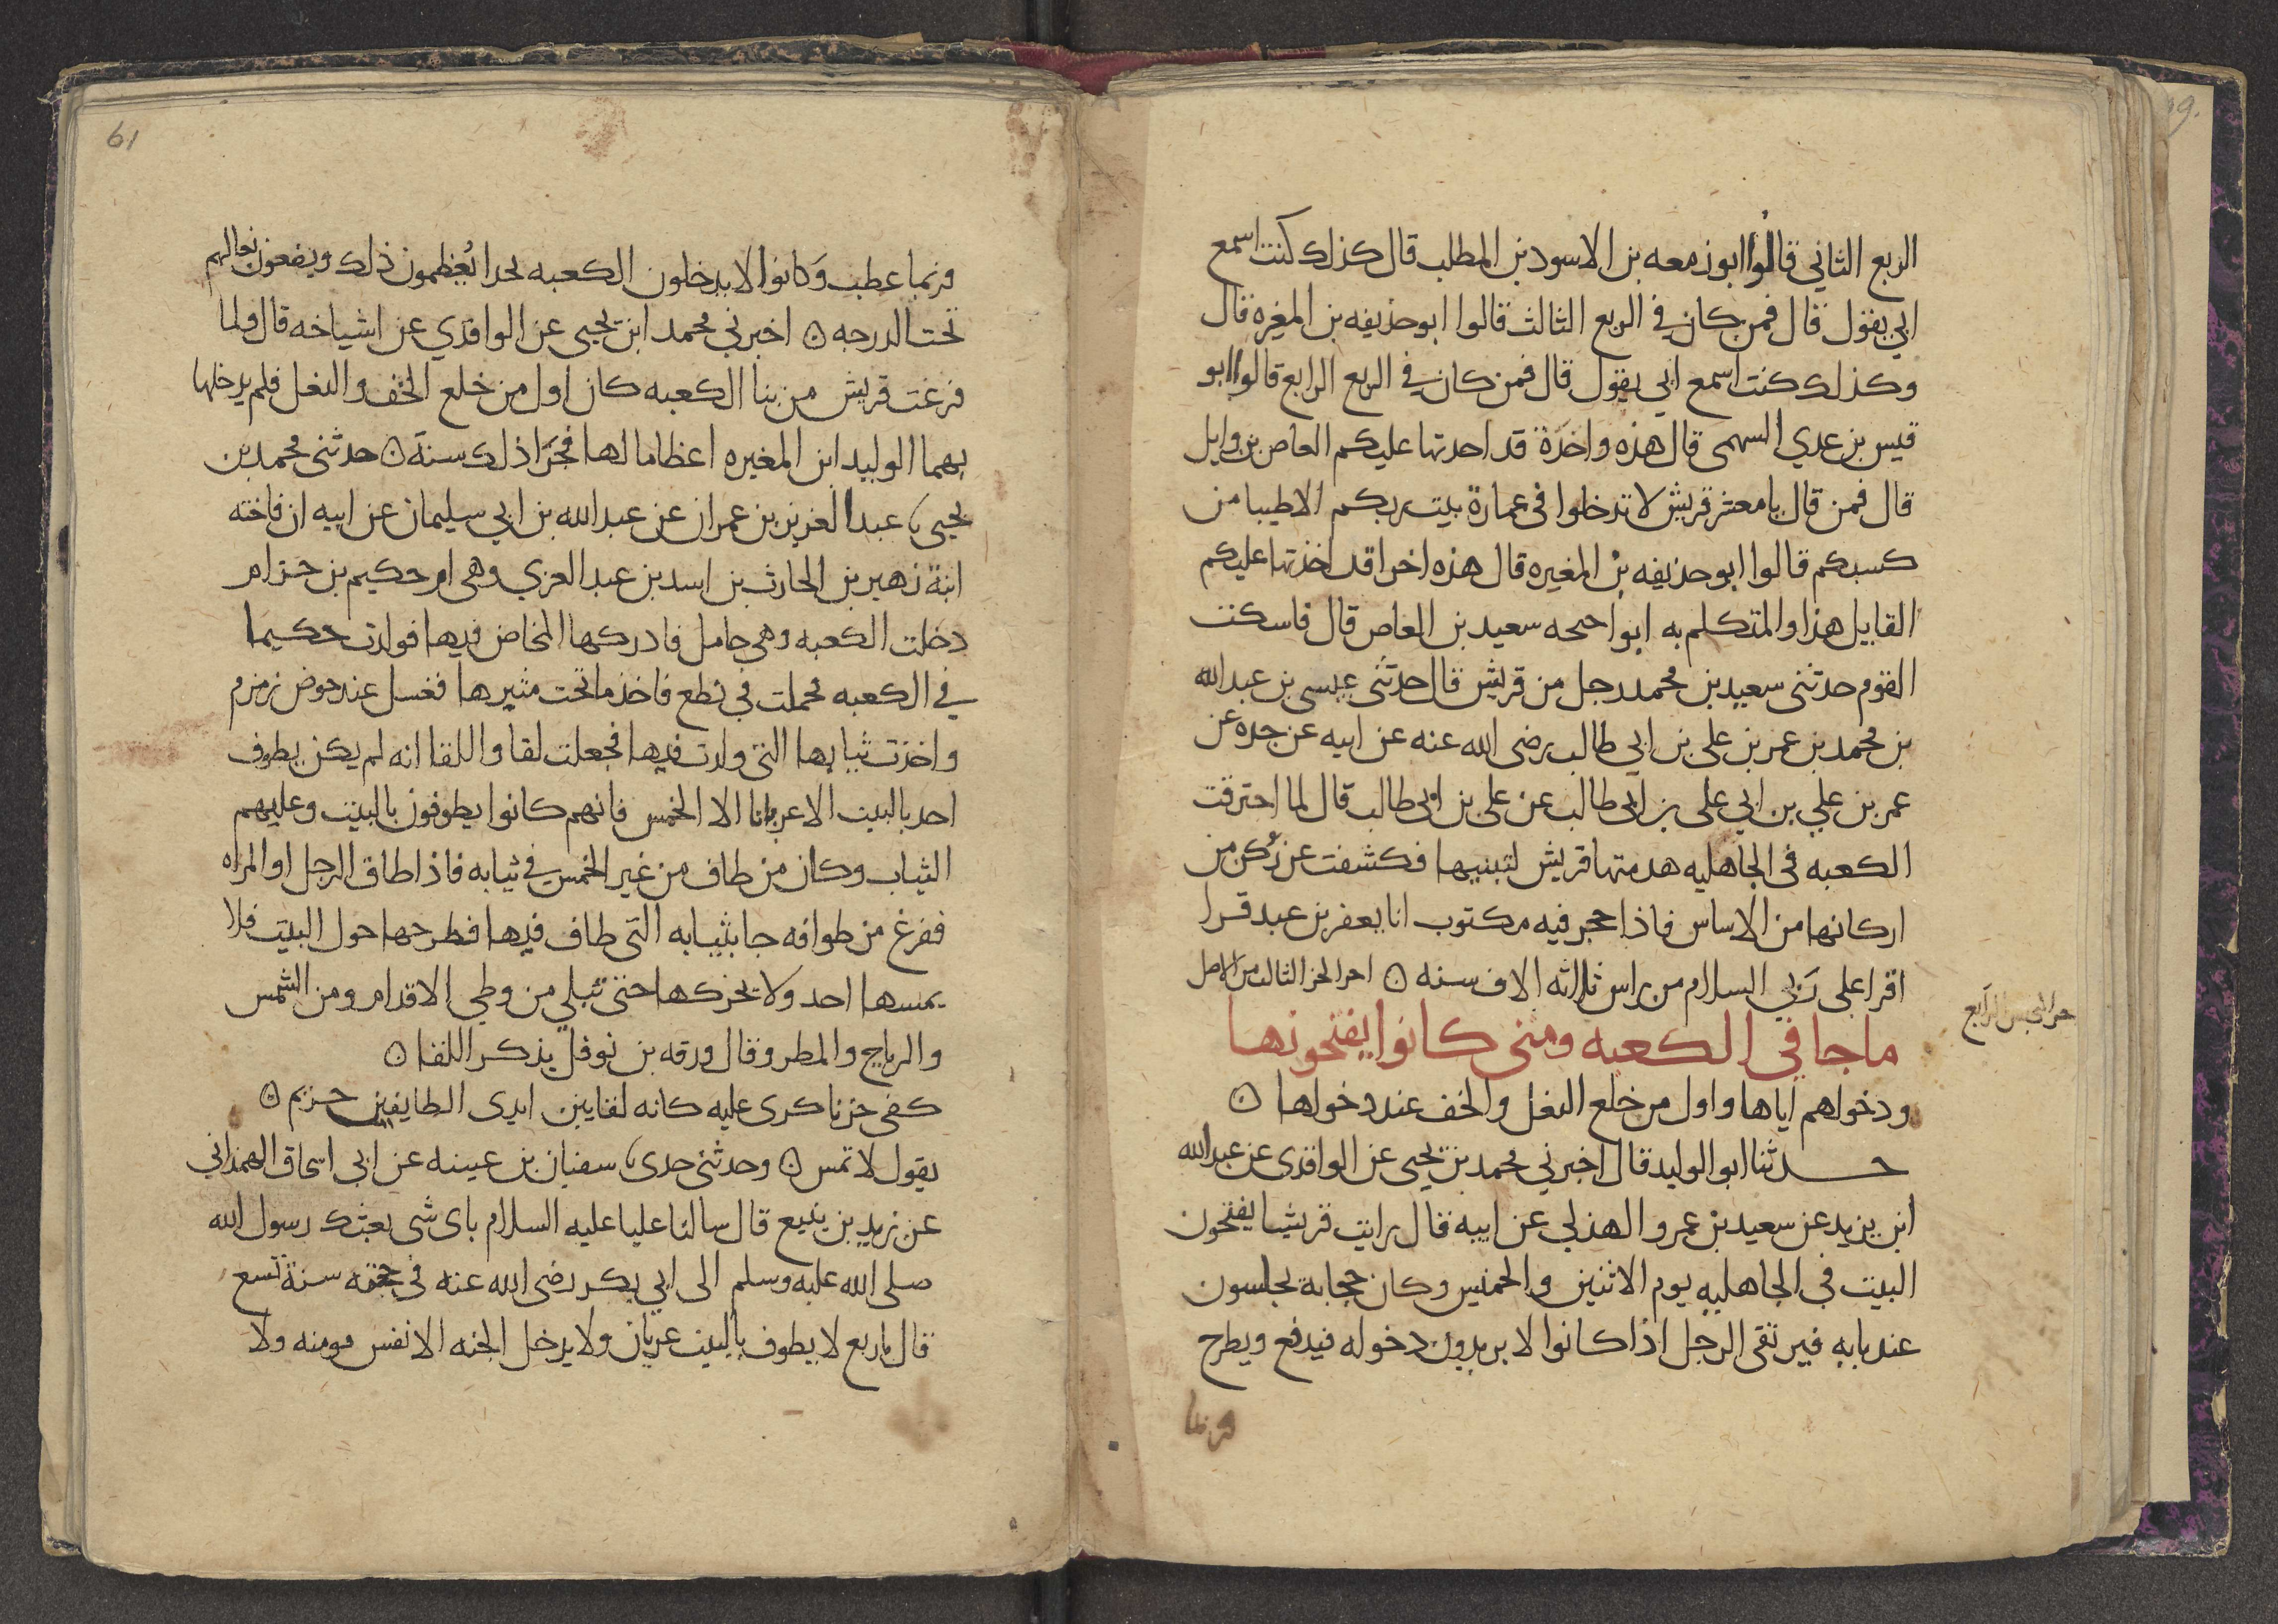 الربع الثاني قالوا ابو زمعه بن الاسود بن المطلب قال كذلك كنت اسمع
ابي يقول قال فمن كان في الربع الثالث قالوا ابو حذيفه بن المغيرة قال
وكذلك كنت اسمع ابي يقول قال فمن كان في الربع الرابع قالوا ابو
قيس بن عدي السهمى قال هذه واحدة قد احدتها عليكم العاص بن وايل
قال فمن قال يا معشر قريش لا تدخلوا في عمارة بيت ربكم الا طيبا من
كسبكم قالوا ابو حذيفه بن المغيره قال هذه اخرا قد اخذتها عليكم
القايل هذا والمتكلم به ابو احيحه سعيد بن العاص قال فاسكت
القوم حدثنى سعيد بن محمد رجل من قريش قال حدثنى عيسى بن عبد الله
بن محمد بن عمر بن على بن ابي طالب رضى الله عنه عن ابيه عن جده عن
عمر بن علي بن ابي على بن ابى طالب عن على بن ابى طالب قال لما احترقت
الكعبه فى الجاهليه هدمتها قريش لتبنيها فكشفت عن ركن من
اركانها من الاساس فاذا حجر فيه مكتوب انا يعفر بن عبد قرا
اقرا على ربي السلام من راس ثلاثه الاف سنه ۞ اخر الجز الثالث من الاصل
الرابع
ما جا في الكعبه ومتى كانوا يفتحونها
ودخولهم اياها واول من خلع النعل والخف عند دخولها ۞
حدثنا ابو الوليد قال اخبرني محمد بن يحيى عن الواقدى عن عبد الله
ابن يزيد عن سعيد بن عمرو الهذلي عن ابيه قال رايت قريشا يفتحون
البيت في الجاهليه يوم الاثنين والخميس وكان حجابه يجلسون
عند بابه فيرتقى الرجل اذا كانوا لا يريدون دخوله فيدفع ويطرح
وربما
61
وربما عطب وكانوا لا يدخلون الكعبه بحدا يعظمون ذلك ويضعون نعالهم
تحت الدرجه ۞ اخبرني محمد ابن يحيى عن الواقدي عن اشياخه قال ولما
فرغت قريش من بنا الكعبه كان اول من خلع الخف والنعل فلم يدخلها
بهما الوليد ابن المغيره اعظاما لها فجرا ذلك سنة ۞ حدثنى محمد بن
يحيى عبد العزيز بن عمران عن عبد الله بن ابي سليمان عن ابيه ان فاخته
ابنة زهير بن الحارث بن اسد بن عبد العزي وهى ام حكيم بن حزام
دخلت الكعبه وهى حامل فادركها المخاض فيها فولدت حكيما
في الكعبه فحملت في نطع فاخذ ما تحت مثبرها فغسل عند حوض زمزم
واخذت ثيابها التى ولدت فيها فجعلت لقا واللقا انه لم يكن يطوف
احد بالبيت الا عريانا الا الحمس فانهم كانوا يطوفون بالبيت وعليهم
الثياب وكان من طاف من غير الحمس في ثيابه فاذا طاف الرجل او المراه
ففرغ من طوافه جا بثيابه التى طاف فيها فطرحها حول البيت فلا
يمسها احد ولا يحركها حتى تبلي من وطي الاقدام ومن الشمس
والرياح والمطر وقال ورقه بن نوفل يذكر اللقا ۞
كفى حزنا كرى عليه كانه لقا بين ايدى الطايفين حزيم ۞
يقول لا تمس ۞ وحدثنى جدى سفيان بن عيينه عن ابي اسحاق الهمذاني
عن زيد بن يثيع قال سالنا عليا عليه السلام باى شى بعثك رسول الله
صلى الله عليه وسلم الى ابي بكر رضى الله عنه في حجته سنة تسع
قال باربع لا يطوف بالبيت عريان ولا يدخل الجنه الا نفس مومنه ولا